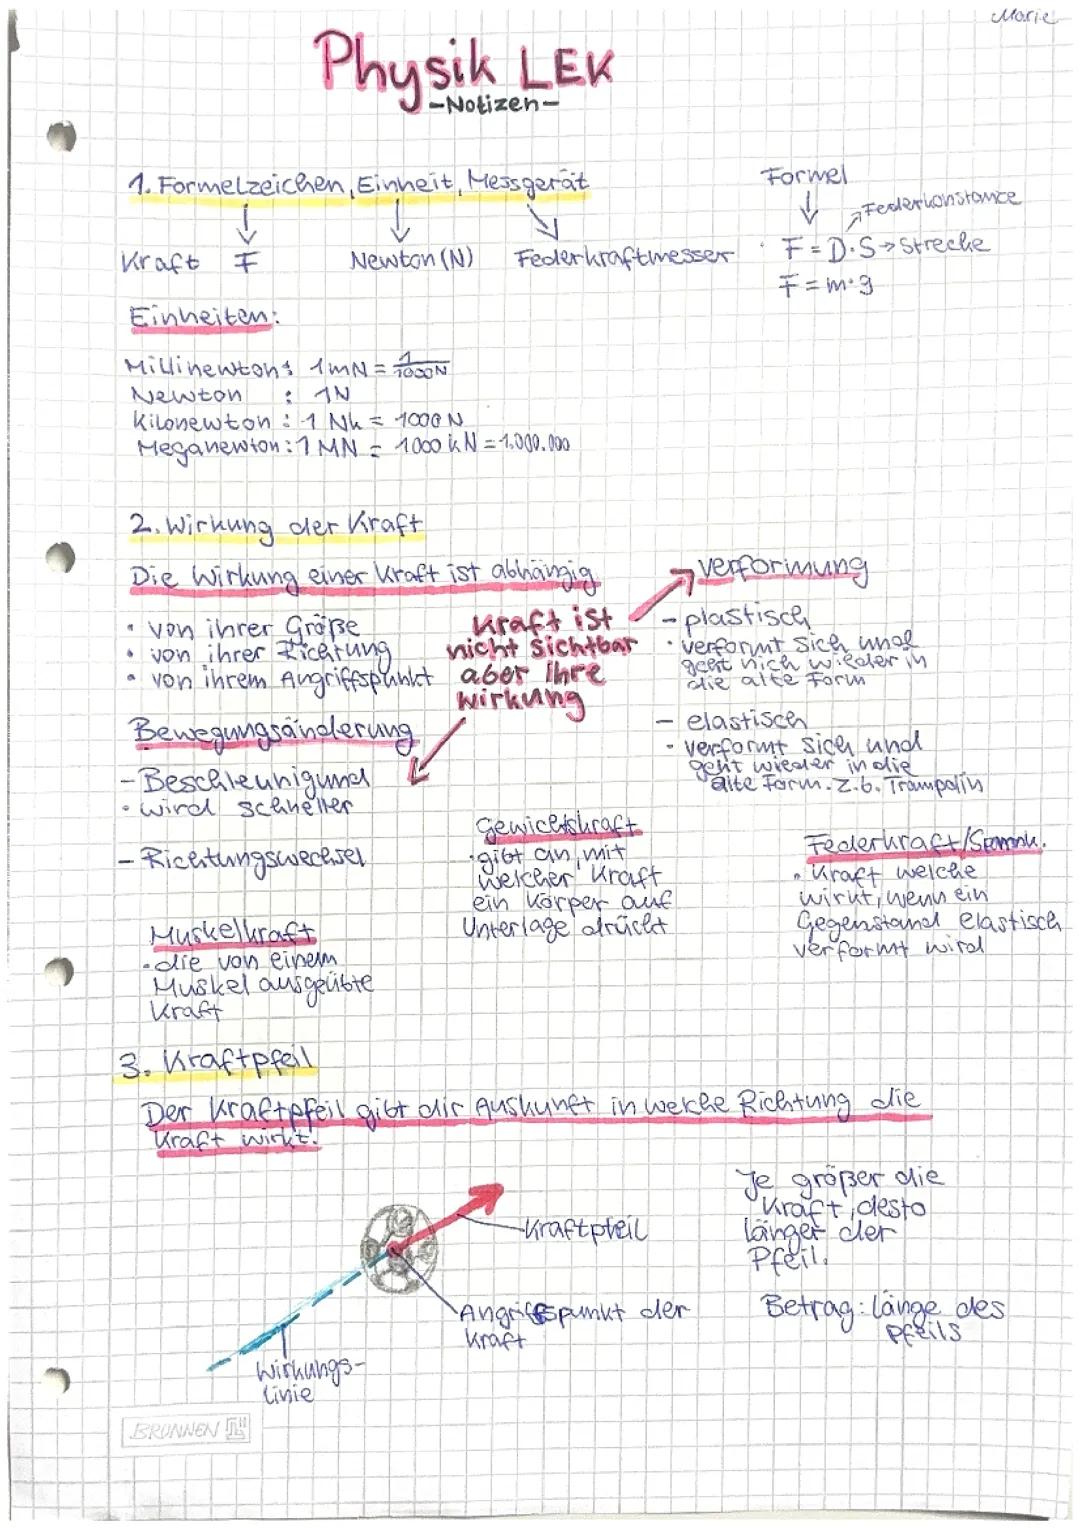 Marie
Physik LEK
-Notizen-
1. Formelzeichen, Einheit, Messgerät
Kraft F
Newton (N)
Federkraftmesser
Formel
Federkonstance
F = D·S → Strecke
F = m·g
Einheiten:
Millinewton: 1mN = 1/1000N
Newton : 1N
Kilonewton : 1 Nk = 1000 N
Meganewton: 1 MN = 1000 kN = 1.000.000
2. Wirkung der Kraft
Die Wirkung einer Kraft ist abhängig
• von ihrer Größe
• von ihrer Richtung
• von ihrem Angriffspunkt
Kraft ist
nicht sichtbar
aber Ihre
wirkung
verformung
- plastisch
• verformt sich und
geht nich wieder in
die alte Form
- elastisch
• verformt sich und
geht wieder in die
alte Form. z.b. Trampolin
Bewegungsänderung
- Beschleunigund
• wird schneller
- Richtungswechsel
Gewichtskraft
• gibt an, mit
welcher Kraft
ein Körper auf
Unterlage drückt
Federkraft/Spannk.
• Kraft welche
wirkt, wenn ein
Gegenstand elastisch
verformt wird
Muskelkraft
• die von einem
Muskel ausgeübte
Kraft
3. Kraftpfeil
Der Kraftpfeil gibt dir Auskunft in welche Richtung die
Kraft wirkt.
Kraftpfeil
Angriffspunkt der
Kraft
Wirkungs-
linie
Je größer die
Kraft, desto
länger der
Pfeil.
Betrag: länge des
Pfeils
BRUNNEN